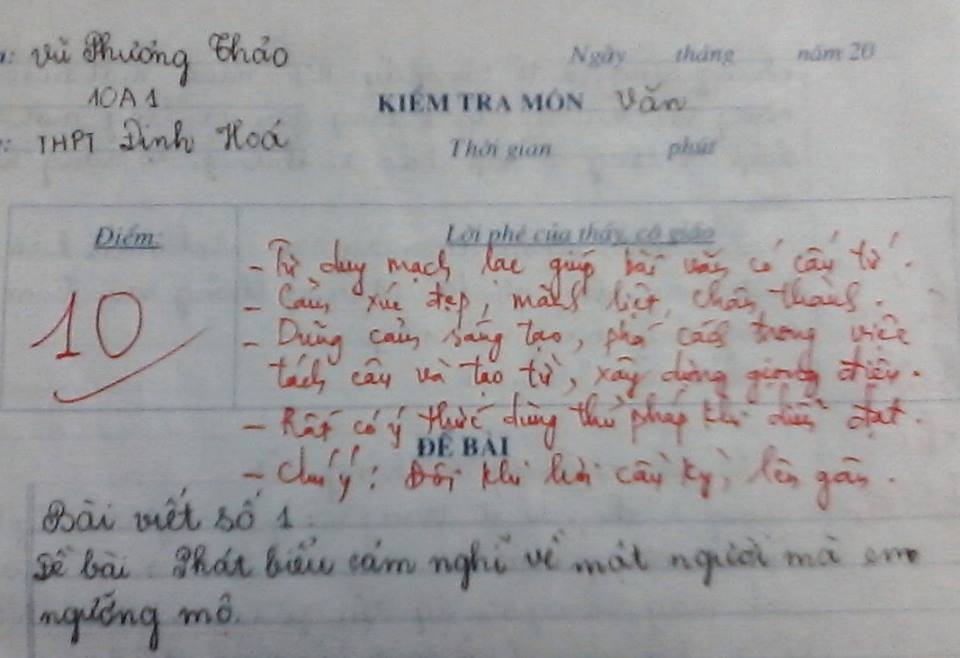 : Vũ Phương Thảo
Ngày tháng năm 20
10A1
KIỂM TRA MÔN Văn
: THPT Định Hoá
Thời gian phút
Điểm:
Lời phê của thầy, cô giáo
10
- Tư duy mạch lạc giúp bài văn có cấu tứ.
- Cảm xúc đẹp, mãnh liệt, chân thành.
- Dũng cảm sáng tạo, phá cách trong việc
tách câu và tạo từ, xây dựng giọng điệu.
- Rất có ý thức dùng thủ pháp khi diễn đạt.
ĐỀ BÀI
- Chú ý: Đôi khi hơi cầu kỳ, lên gân.
Bài viết số 1
Đề bài: Phát biểu cảm nghĩ về một người mà em
ngưỡng mộ.